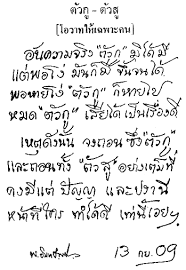 ตัวกู - ตัวสู
(โอวาทให้เฉพาะคน)
อันความจริง "ตัวกู" มิได้มี
แต่พอโง่ มันก็มี ขึ้นจนได้
พอหายโง่ "ตัวกู" ก็หายไป
หมด "ตัวกู" เสียได้ เป็นเรื่องดี
เหตุดังนั้น จงถอน ซึ่ง "ตัวกู"
และถอนทั้ง "ตัวสู" อย่างเต็มที่
คงมีแต่ ปัญญา และปรานี
หน้าที่ใคร ทำให้ดี เท่านี้เอยฯ
13 กย. 09